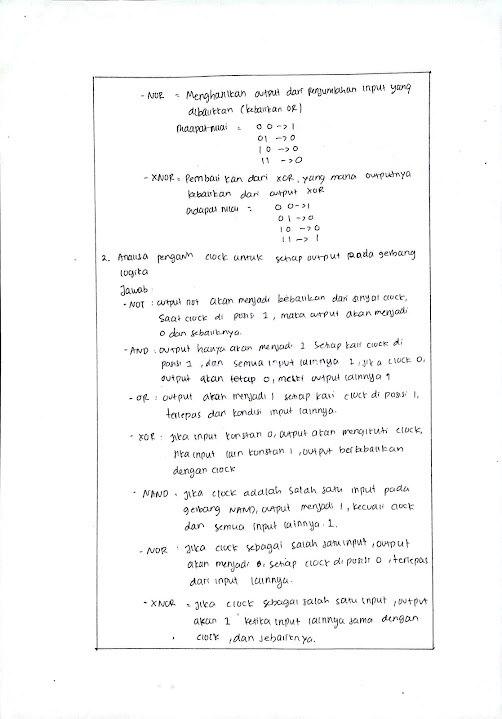 - NOR = Menghasilkan output dari penjumlahan input yang
dibalikkan (kebalikan OR)
Didapat nilai = 0 0 -> 1
01 -> 0
1 0 -> 0
11 -> 0
- XNOR = Pembalikan dari XOR, yang mana outputnya
kebalikan dari output XOR
Didapat nilai = 0 0 -> 1
0 1 -> 0
1 0 -> 0
1 1 -> 1
2. Analisa pengaruh clock untuk setiap output pada gerbang
logika
Jawab :
- NOT : output not akan menjadi kebalikan dari sinyal clock,
saat clock di posisi 1, maka output akan menjadi
0 dan sebaliknya.
- AND : output hanya akan menjadi 1 setiap kali clock di
posisi 1, dan semua input lainnya 1, jika clock 0,
output akan tetap 0, meski output lainnya 1
- OR : output akan menjadi 1 setiap kali clock di posisi 1,
terlepas dari kondisi input lainnya.
- XOR : jika input konstan 0, output akan mengikuti clock,
jika input lain konstan 1, output berkebalikan
dengan clock
- NAND : jika clock adalah salah satu input pada
gerbang NAND, output menjadi 1, kecuali clock
dan semua input lainnya 1.
- NOR : jika clock sebagai salah satu input, output
akan menjadi 0, setiap clock di posisi 0, terlepas
dari input lainnya.
- XNOR = jika clock sebagai salah satu input, output
akan 1 ketika input lainnya sama dengan
clock, dan sebaliknya.